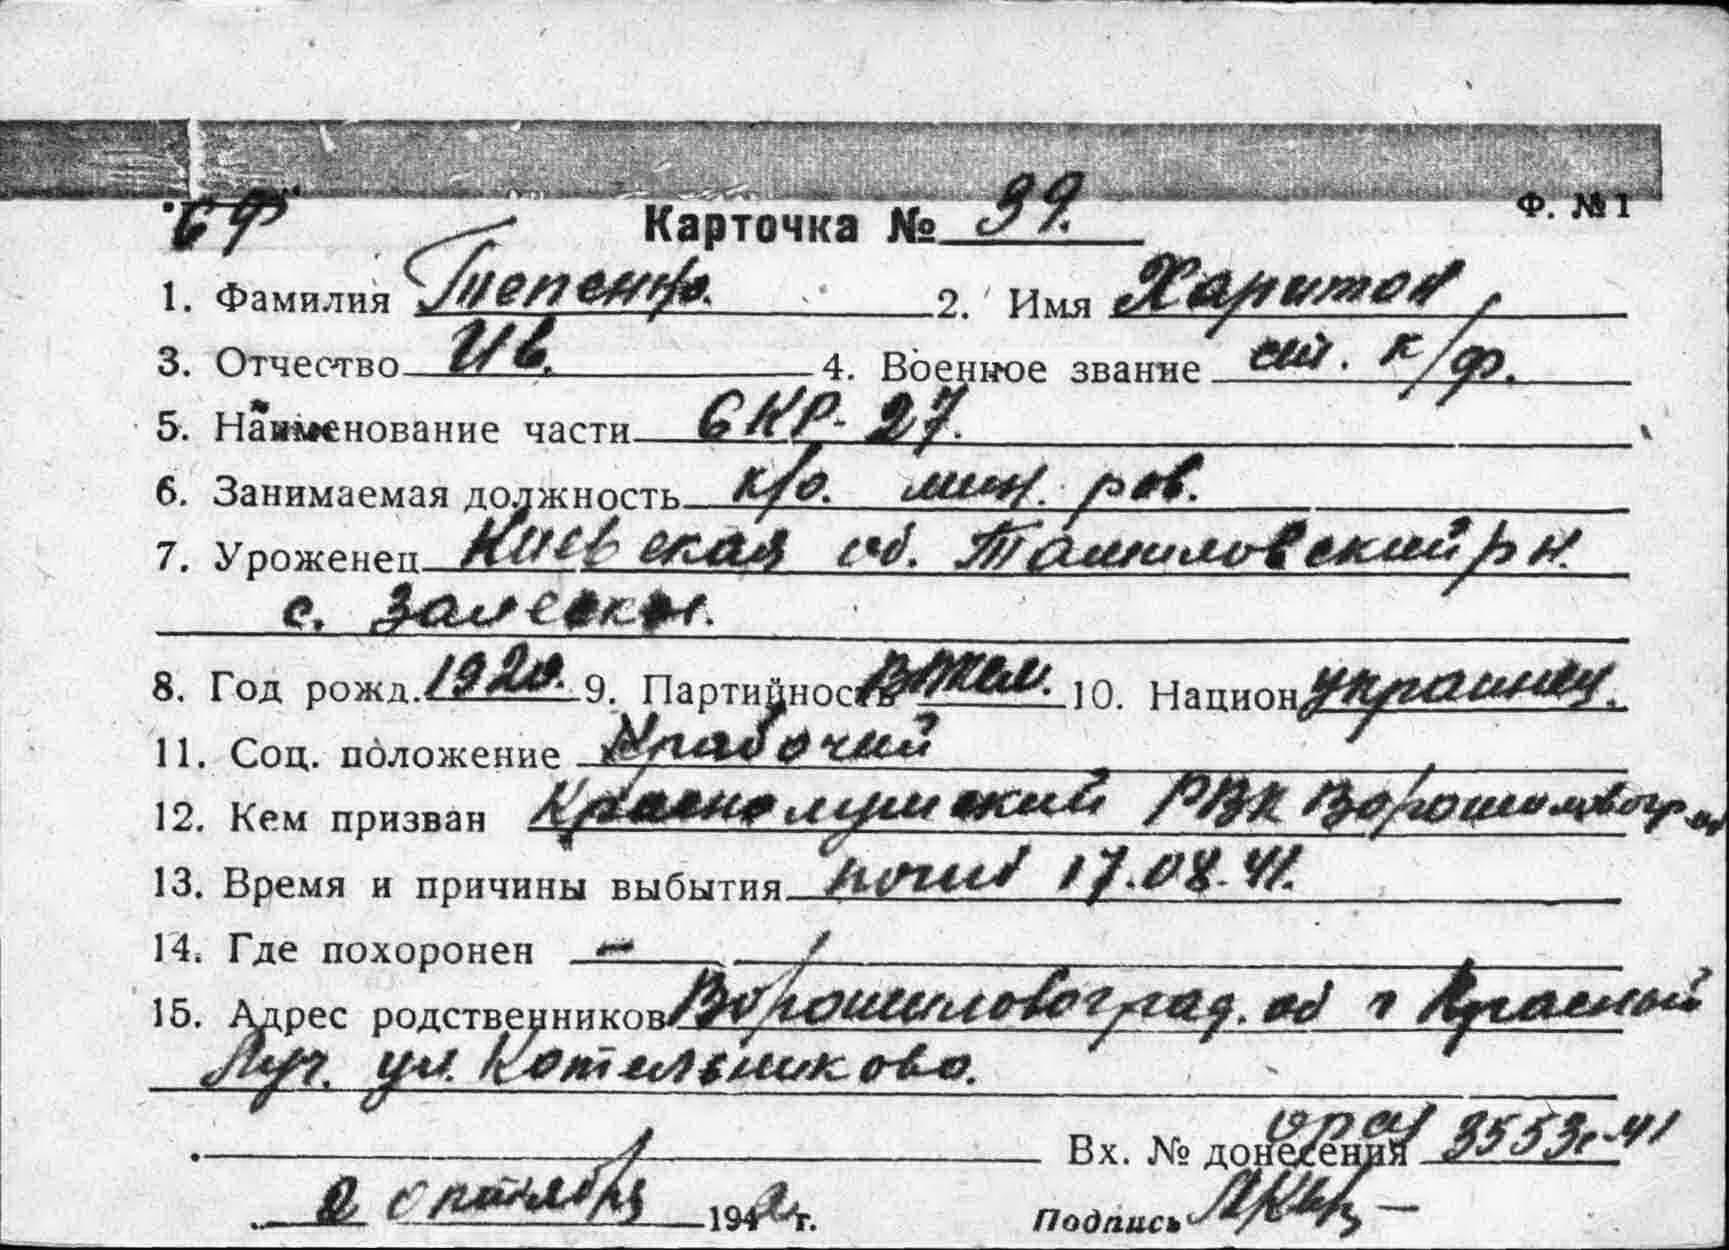 СФ Ф. № 1
Карточка № 39.
1. Фамилия Тепенко. 2. Имя Харитон
3. Отчество Ив. 4. Военное звание ст. к/ф.
5. Наименование части СКР-27.
6. Занимаемая должность к/о. мин.
7. Уроженец Киевская об. р н.
с.
8. Год рожд. 1920. 9. Партийность ВЛКСМ. 10. Национ украинец.
11. Соц. положение рабочий
12. Кем призван РВК Ворошиловогр. об
13. Время и причины выбытия погиб 17.08.41.
14. Где похоронен –
15. Адрес родственников Ворошиловоград. об г Красный
Луч. ул. Котельниково.
Вх. № донесения 3553с-41
2 октября 1942 г. Подпись